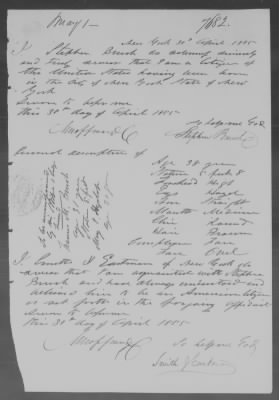 May 1 - 7682
New York 30th April 1855
I Stephen Brush do solemnly
and truly swear that I am a citizen of
the United States having been born
in the City of New York State of New
York
Sworn to before me
this 30th day of April 1855
So help me God
Stephen Brush
Personal description of
Age 38 years
Stature 5 feet 8
Forehead High
Eyes Hazel
Nose Straight
Mouth Medium
Chin Round
Hair Brown
Complexion Fair
Face Oval
I Smith J Eastman of New York do
swear that I am acquainted with Stephen
Brush and have always understood and
believe him to be an American Citizen
as set forth in the foregoing affidavit
Sworn to before me
this 30th day of April 1855
So help me God,
Smith J Eastman